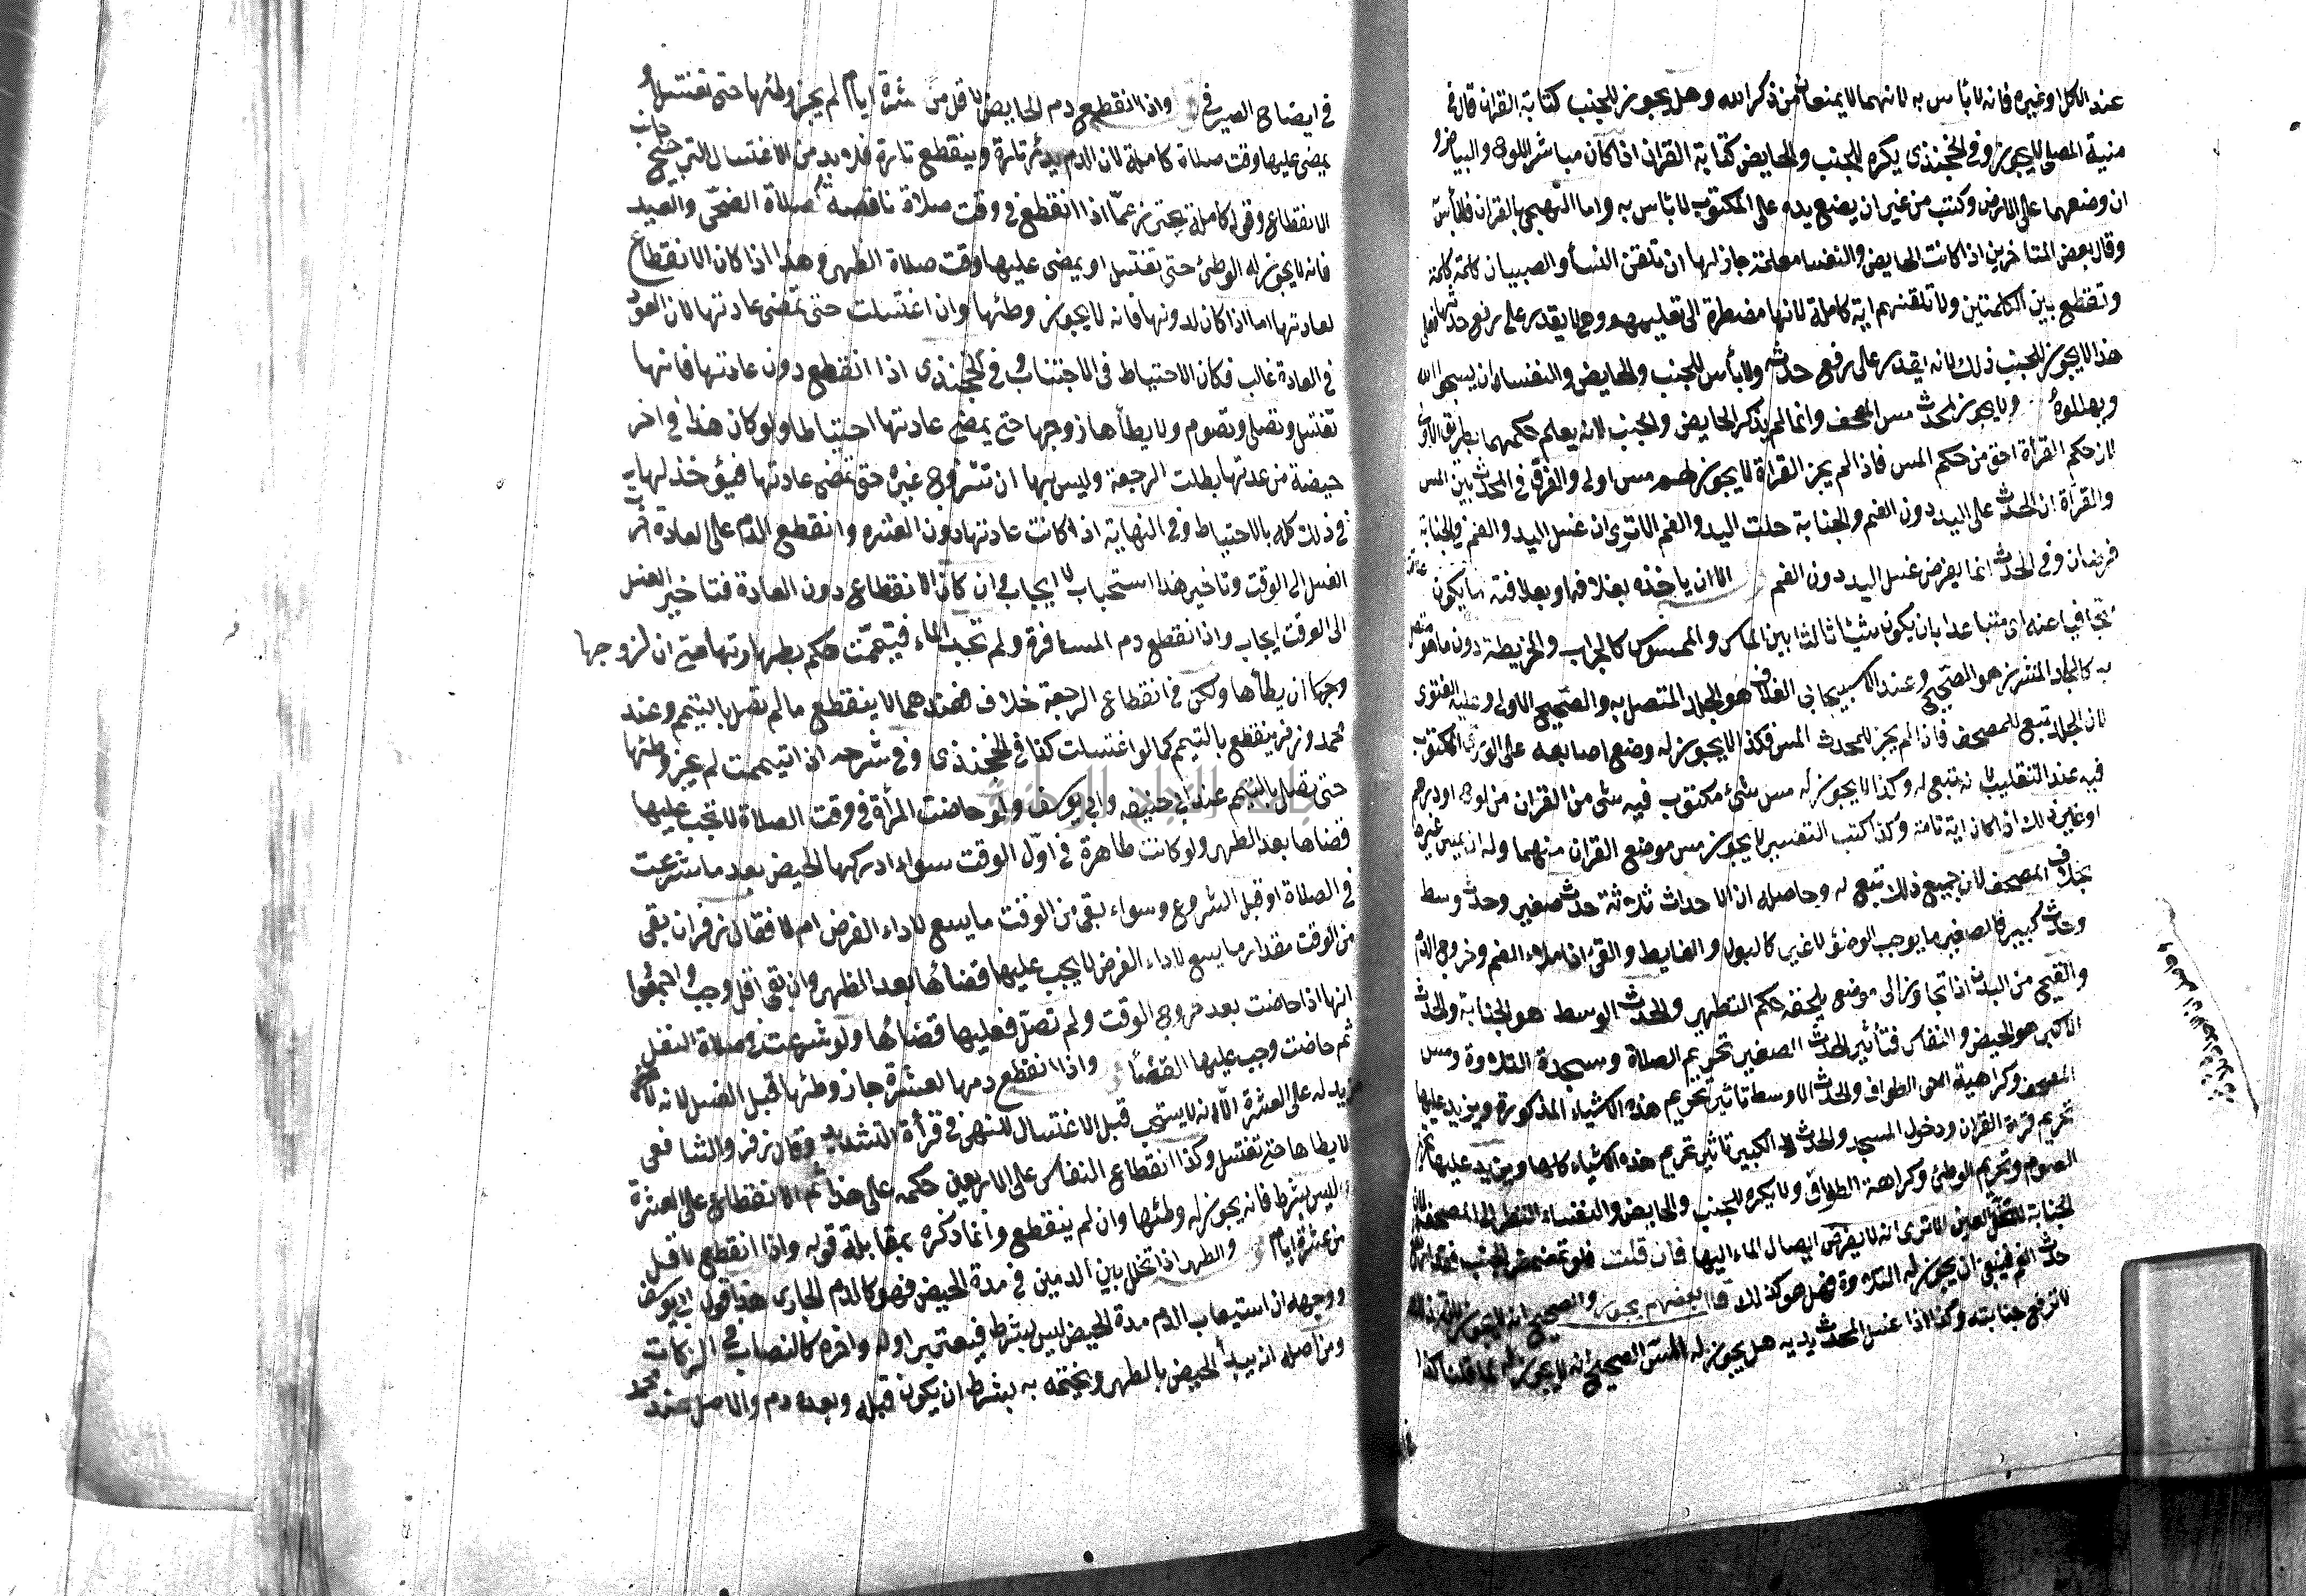 عند الاكل او غيره فانه لا بأس به لانهما لا يمنعان من ذكر الله وهل يجوز للجنب كتابة القران قال في
منية المصلي لا يجوز وفي الخجندي يكره للجنب والحايض كتابة القران اذا كان مباشر اللوح والبياض و
ان وضعهما على الارض وكتب من غير ان يضع يده على المكتوب لا بأس به واما التهجي بالقران فلا بأس
وقال بعض المتاخرين اذا كانت الحايض والنفسا معلمة جاز لها ان تلقن النسأ والصبيان كلمة كلمة
وتقطع بين الكلمتين ولا تلقنهم اية كاملة لانها مضطرة الى تعليمهم وهي لا يقدر على رفع حدثها فعلى
هذا لا يجوز للجنب ذلك لانه يقدر على رفع حدثه ولا بأس للجنب والحايض والنفساء ان يسبحوا الله
ويهللوه ولا يجوز لمحدث مس المصحف وانما لم يذكر الحايض والجنب لانه يعلم حكمهما بطريق الاولى
لان حكم القرأة اخف من حكم المس فاذا لم يجز القراة لا يجوز لهم مس اولى والفرق في المحدث بين المس
والقرأة ان الحدث على اليد دون الفم والجنابة حلت اليد والفم الا ترى ان غسل اليد والفم في الجنابة
فرضان وفي الحدث انما يفرض غسل اليد دون الفم الا ان ياخذه بغلافه او بعلاقته ما يكون
متجافيا عنه اي متباعدا بان يكون شيئا ثالثا بين الماس والممسوس كالجراب والخريطة دون ما هو متصل
به كالجلد المشرز هو الصحيح وعند الاسبيجابي الغلاف هو الجلد المتصل به والصحيح الاول وعليه الفتوى
لان الجلد تبع للمصحف فاذا لم يجز للمحدث المس فكذا لا يجوز له وضع اصابعه على الورق المكتوب
فيه عند التقليب لانه تبع له وكذا لا يجوز له مس شئ مكتوب فيه شئ من القران من لوح او درهم
او غير ذلك اذا كان اية تامة وكذا كتب التفسير لا يجوز مس موضع القران منهما وله ان يمس غيرها
بخلاف المصحف لان جميع ذلك تبع له وحاصله ان الاحداث ثلاثة حدث صغير وحدث وسط
وحدث كبير فالصغير ما يوجب الوضؤ لا غير كالبول والغايط والقئ اذا ملاء الفم وخروج الدم
والقيح من البدن اذا تجاوز الى موضع يلحقه حكم التطهير والحدث الوسط هو الجنابة والحدث
الاكبر هو الحيض والنفاس فتأثير الحدث الصغير تحريم الصلاة وسجدة التلاوة ومس
المصحف وكراهية الطواف والحدث الاوسط تاثيره تحريم هذه الاشياء المذكورة ويزيد عليها
تحريم قرأة القران ودخول المسجد والحدث الكبير تاثيره تحريم هذه الاشياء كلها ويزيد عليها تحريم
الصوم وتحريم الوطئ وكراهة الطلاق ولا يكره للجنب والحايض والنفساء النظر الى المصحف لان
الجنابة لا تحل العين الا ترى انه لا يفرض ايصال الماء اليها فان قلت فلو تمضمض الجنب
حدث الفم فينبغي ان يجوز له التلاوة فهل هو كذلك قال بعضهم يجوز والصحيح انه لا يجوز
لا ترفع جنابته وكذا اذا غسل المحدث يديه هل يجوز له المس الصحيح انه لا يجوز له لما قلنا كذا
في ايضاح الصيرفي واذا انقطع دم الحايض لاقل من عشرة ايام لم يجز وطئها حتى تغتسل او
يمضي عليها وقت صلاة كاملة لان الدم يدر تارة وينقطع تارة فلا بد من الاغتسال ليترجح جانب
الانقطاع وقوله كاملة تحترز عما اذا انقطع في وقت صلاة ناقصة كصلاة الضحى والعيد
فانه لا يجوز له الوطئ حتى تغتسل او يمضي عليها وقت صلاة الظهر وهذا اذا كان الانقطاع
لعادتها اما اذا كان لدونها فانه لا يجوز وطئها وان اغتسلت حتى تمضي عادتها لان العود
في العادة غالب فكان الاحتياط في الاجتناب وفي الخجندي اذا انقطع دون عادتها فانها
تغتسل وتصلي وتصوم ولا يطأها زوجها حتى يمضي عادتها احتياطا ولو كان هذا في اخر
حيضة من عدتها بطلت الرجعة وليس لها ان تتزوج غيره حتى تمضي عادتها فيؤخذ لها
في ذلك كله بالاحتياط وفي النهاية اذا كانت عادتها دون العشرة وانقطع الدم على العادة اخرت
الغسل الى الوقت وتاخير هذا استحباب لا ايجاب وان كان الانقطاع دون العادة فتاخير الغسل
الى الوقت ايجاب واذا انقطع دم المسافرة ولم تجد الماء فتيممت حكم بطهارتها حتى ان لزوجها
ان يطأها ولكن في انقطاع الرجعة خلاف فعندهما لا ينقطع ما لم تصل بالتيمم وعند
محمد وزفر ينقطع بالتيمم كما لو اغتسلت كذا في الخجندي وفي شرحه اذا تيممت لم يجز وطئها
حتى تصلي بالتيمم عند ابي حنيفه وابي يوسف ولو حاضت المرأة في وقت الصلاة لا يجب عليها
قضاها بعد الطهر ولو كانت طاهرة في اول الوقت سواء ادركها الحيض بعد ما شرعت
في الصلاة او قبل الشروع وسواء بقي من الوقت ما يسع لاداء الفرض ام لا فقال زفر ان بقي
من الوقت مقدار ما يسع لاداء الفرض لا يجب عليها قضائها بعد الطهر وان بقي اقل وجب واجمعوا
انها اذا حاضت بعد خروج الوقت ولم تصل فعليها قضائها ولو شرعت في صلاة النفل
ثم حاضت وجب عليها القضأ واذا انقطع دمها لعشرة جاز وطئها قبل الغسل لانه لا
مزيد له على العشرة الا انه لا يستحب قبل الاغتسال للنهي في قرأة التشديد وقال زفر والشافعي
لا يطاها حتى تغتسل وكذا انقطاع النفاس على الاربعين حكمه على هذا ثم الانقطاع على العشرة
ليس بشرط فانه يجوز له وطئها وان لم ينقطع وانما ذكره بمقابلة قوله واذا انقطع لاقل
من عشرة ايام والطهر اذا تخلل بين الدمين في مدة الحيض فهو كالدم الجاري هذا قول ابي يوسف
ووجهه ان استيعاب الدم مدة الحيض ليس بشرط فيعتبر اوله واخره كالنصاب في الزكاة
ومن اصله انه يبدأ الحيض بالطهر ويختمه به بشرط ان يكون قبله وبعده دم والاصل عند محمد